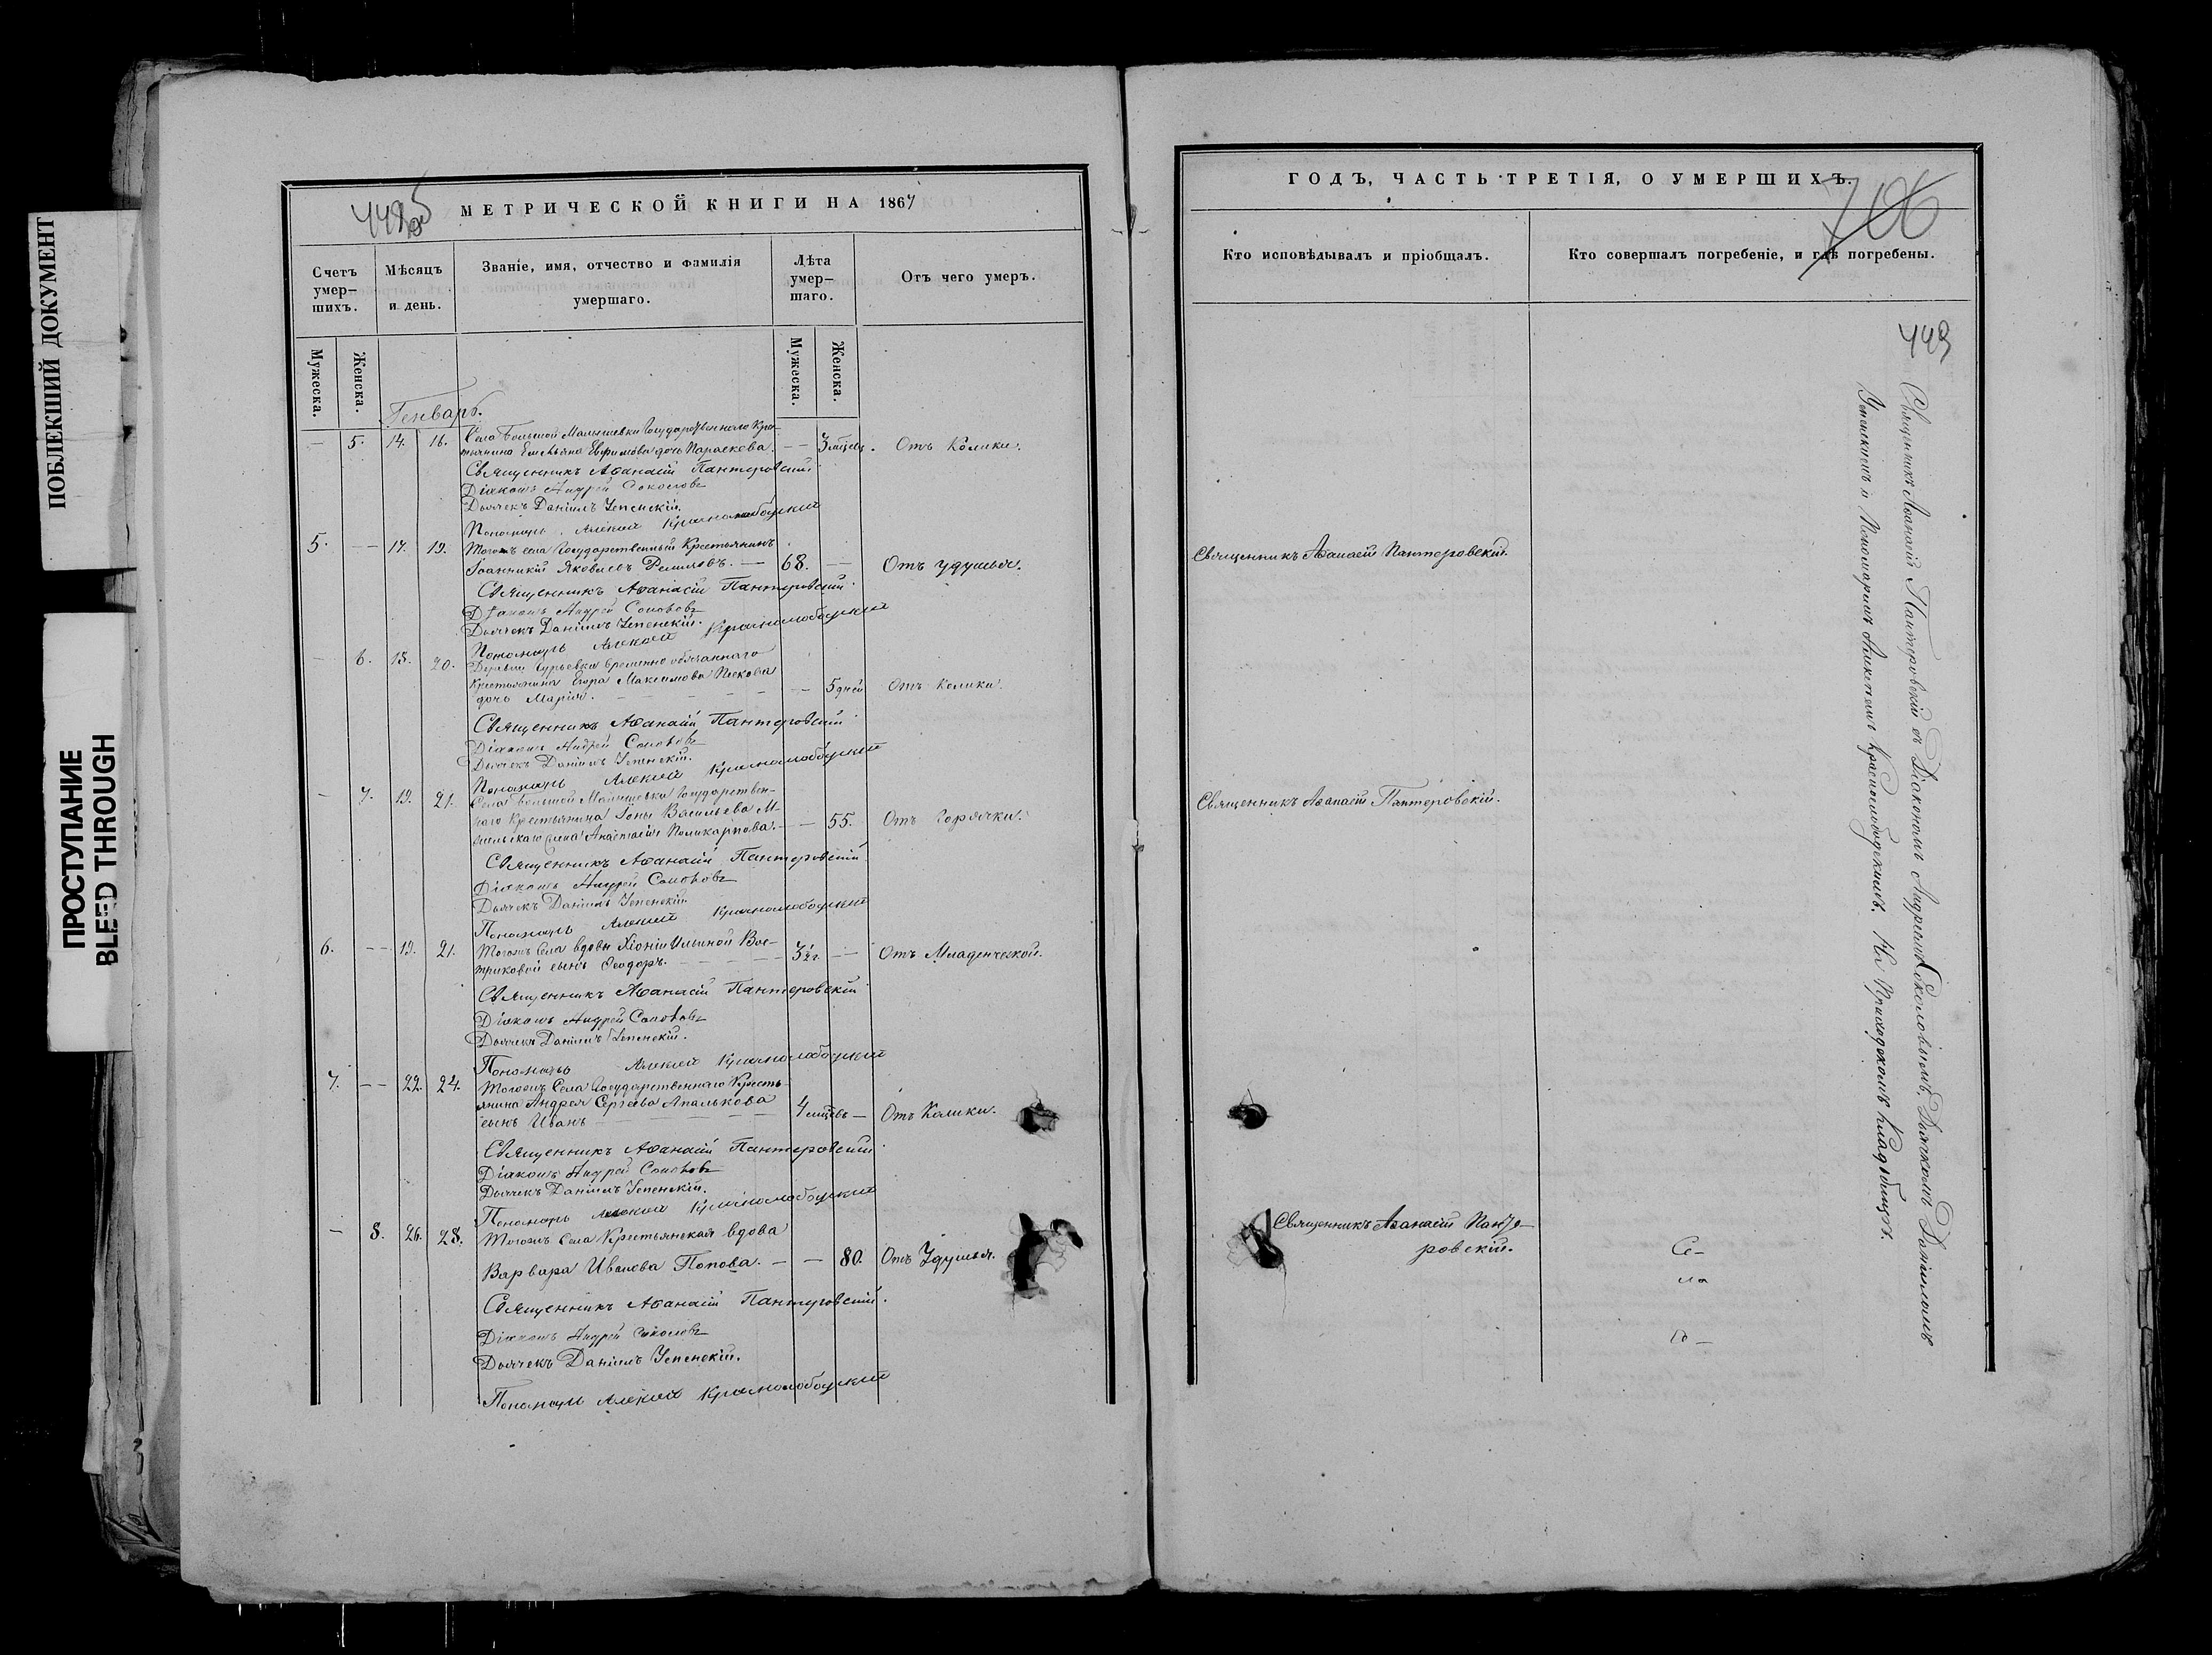 ПОБЛЕКШИЙ ДОКУМЕНТ
ПРОСТУПАНИЕ
BLEED THROUGH
МЕТРИЧЕСКОЙ КНИГИ НА 1867
Счетъ умер-
шихъ.
Мѣсяцъ
и день.
Званіе, имя, отчество и фамилія
умершаго.
Лѣта
умер-
шаго.
Отъ чего умеръ.
Мужеска.
Женска.
Мужеска.
Женска.
Генварь.
— 5. 14. 16. Села Большой Малышевки Государственнаго Кре-
стьянина Емельяна Ефимова дочь Параскева. — 3 мѣсяц. Отъ Колики.
Священникъ Аѳанасій Пантеровскій
Діаконъ Андрей Соколовъ
Дьячекъ Даніилъ Успенскій.
Пономарь Алексій Краснослободскій
5. — 17. 19. Тогожъ села Государственный Крестьянинъ
Іоанникій Яковлевъ — 68. — Отъ удушья.
Священникъ Аѳанасій Пантеровскій
Діаконъ Андрей Соколовъ
Дьячекъ Даніилъ Успенскій.
Пономарь Алексій Краснослободскій
— 6. 15. 20. Деревни Гурьевки временно обязаннаго
Крестьянина Егора Максимова Пескова
дочь Марія. — 5 дней Отъ Колики.
Священникъ Аѳанасій Пантеровскій
Діаконъ Андрей Соколовъ
Дьячекъ Даніилъ Успенскій.
Пономарь Алексій Краснослободскій
— 7. 19. 21. Села Большой Малышевки Государствен-
наго Крестьянина Іоны Васильева
жена Анастасія Поликарпова. — 55. Отъ Горячки.
Священникъ Аѳанасій Пантеровскій
Діаконъ Андрей Соколовъ
Дьячекъ Даніилъ Успенскій
Пономарь Алексій Краснослободскій
6. — 19. 21. Тогожъ Села вдовы Хіоніи Ильиной Вос-
триковой сынъ Ѳеодоръ. — 3½ г. — Отъ Младенческой.
Священникъ Аѳанасій Пантеровскій
Діаконъ Андрей Соколовъ
Дьячекъ Даніилъ Успенскій.
Пономарь Алексій Краснослободскій
7. — 22. 24. Тогожъ Села Государственнаго Кресть-
янина Андрея Сергѣева Апалькова
сынъ Иванъ — 4 мѣсяц. — Отъ Колики.
Священникъ Аѳанасій Пантеровскій
Діаконъ Андрей Соколовъ
Дьячекъ Даніилъ Успенскій.
Пономарь Алексій Краснослободскій
— 8. 26. 28. Тогожъ Села Крестьянская вдова
Варвара Иванова Попова. — — 80. Отъ Удушья.
Священникъ Аѳанасій Пантеровскій.
Діаконъ Андрей Соколовъ
Дьячекъ Даніилъ Успенскій.
Пономарь Алексій Краснослободскій
ГОДЪ, ЧАСТЬ ТРЕТІЯ, О УМЕРШИХЪ.
706
Кто исповѣдывалъ и пріобщалъ.
Кто совершалъ погребеніе, и гдѣ погребены.
449
Священникъ Аѳанасій Пантеровскій.
Священникъ Аѳанасій Пантеровскій.
Священникъ Аѳанасій Панте-
ровскій.
Се-
ла
Священникъ Аѳанасій Пантеровскій съ Діакономъ Андреемъ Соколовымъ, Дьячкомъ Данииломъ
Успенскимъ и Пономаремъ Алексѣемъ Краснослободскимъ. На Приходскомъ кладбищѣ.